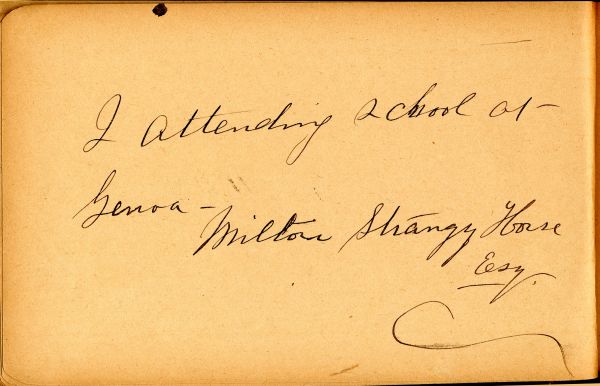 I attending school at -
Genoa -
Milton Strangy Horse
Esq.